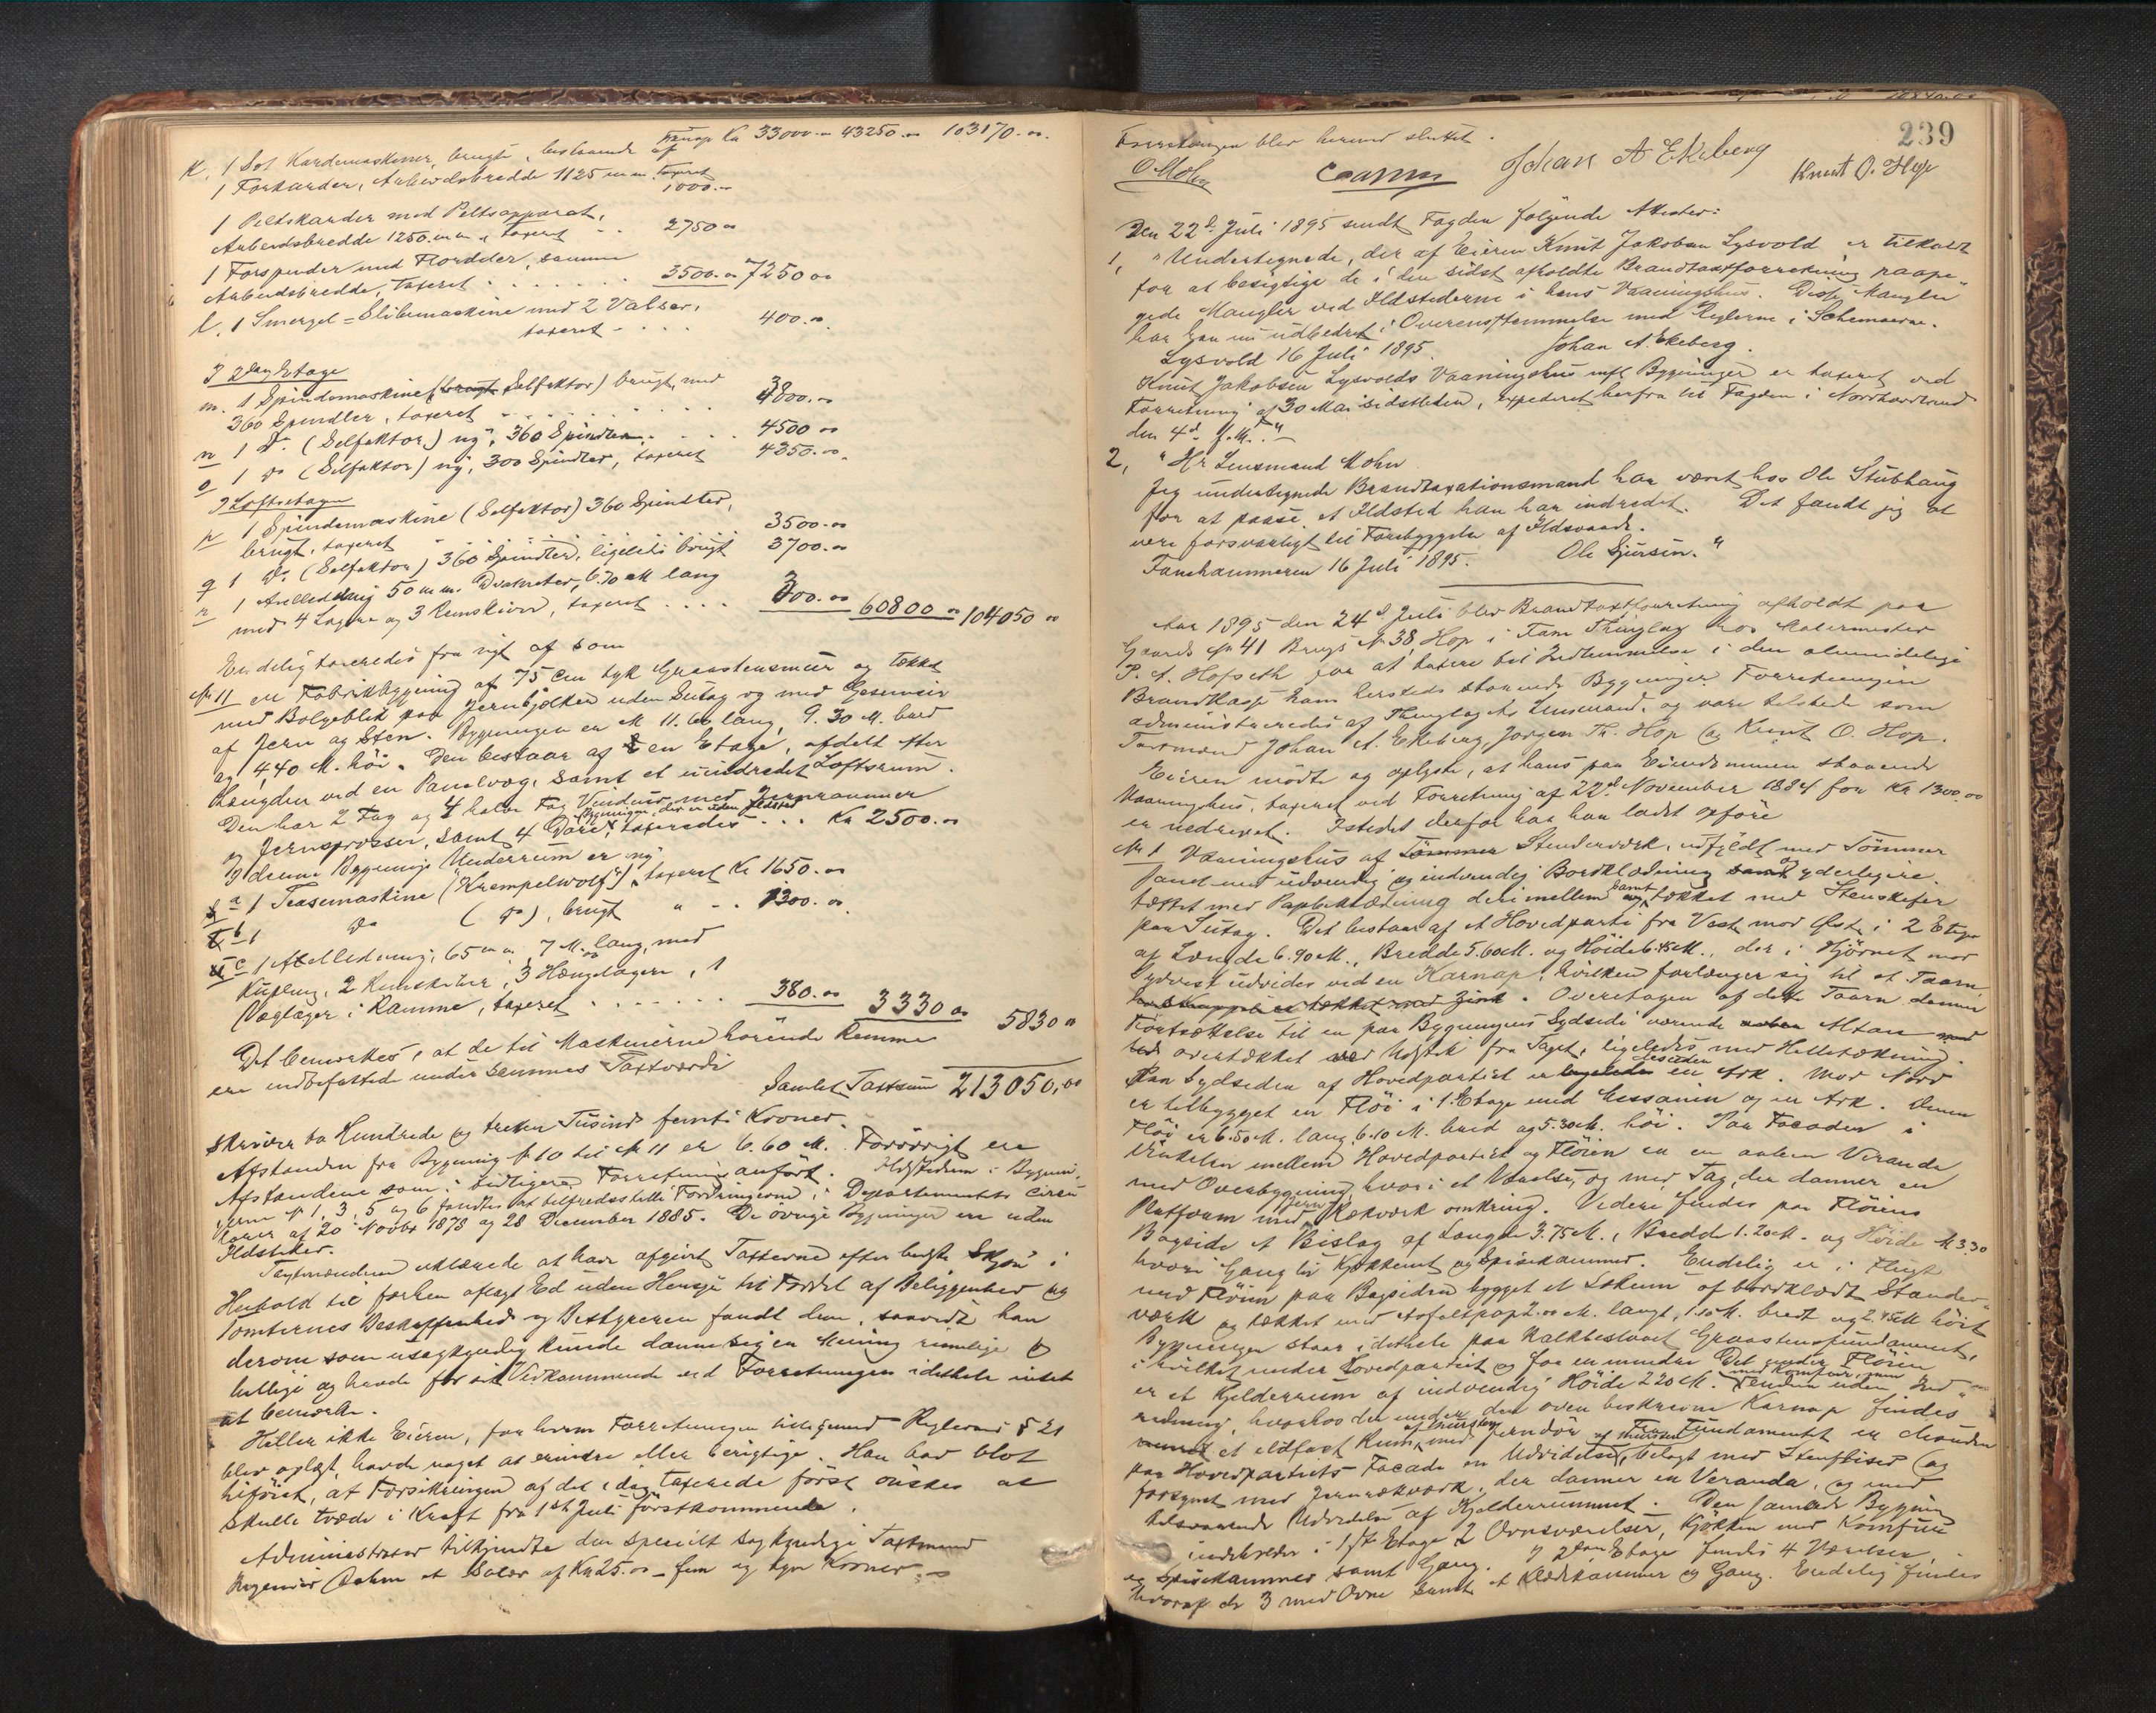 Transp Kr 33000.- 43250.00 103170.00
k. 1 Set Kardemaskiner, brugte, bestaaende af
1 Forkarder, Arbeidsbredde 1125 m.m. taxeret 1000.-
1 Peltskarder med Peltsapparat,
Arbeidsbredde 1250 m.m., taxeret 2750 00
1 Forspinder med Flordeler, samme
Arbeidsbredde, taxeret 3500.00 7250 00
l. 1 Smergel=Slibemaskine med 2 Valser,
taxeret 400.00
I 2den Etage
m. 1 Spindemaskine (Selfaktor) brugt, med
360 Spindler, taxeret 3800.00
n 1 do (Selfaktor) ny, 360 Spindler 4500 00
o 1 do (Selfaktor) ny, 300 Spindler, taxeret 4350.00
I Loftsetagen
p 1 Spindemaskine (Selfaktor) 360 Spindler,
brugt, taxeret 3500.00
q 1 do (Selfaktor) 360 Spindler, ligeledes brugt 3700.00
r 1 Axelledning 50 m.m. Diameter, 6.70 M lang
med 4 Lagere og 3 Remskiver, taxeret 300.00 60800 00 104050 00
Endelig taxeredes fra nyt af som
No 11 en Fabrikbygning af 75 cm tyk Graastensmur og tækket
med Bølgeblik paa Jernbjelker uden Sutag og med Gesimser
af Jern og Sten. Bygningen er M 11.60 lang, 9.30 M. bred
og 4,40 M. høi. Den bestaar af en Etage, afdelt efter
Længden ved en Panelvæg, samt et uindredet Loftsrum.
Den har 2 Fag og 4 halve Fag Vinduer med Jernrammer
og Jernsprosser, samt 4 Døre. Bygningen, der er uden Ildsted, taxeredes Kr 2500.00
I denne Bygnings Underrum er ny
a 1 Teasemaskine ("Krempelwolf"), taxeret Kr 1650.00
b 1 do (do), brugt " 1300.00
c 1 Axelledning, 65 m.m., 7 M. lang, med
Kupling, 2 Remskiver, 3 Hængelagere, 1
Væglager i Ramme, taxeret 380.00 3330 00 5830 00
Det bemærkes, at de til Maskinerne hørende Remme
ere indbefattede under sammes Taxtværdi
Samlet Taxtsum 213050,00
skriver to Hundrede og tretten Tusinde femti Kroner.
Afstanden fra Bygning No 10 til No 11 er 6.60 M. Forøvrigt ere
Afstandene som i tidligere Forretning anført. Ildstederne i Bygnin-
gerne No 1, 3, 5 og 6 fandtes at tilfredsstille Fordringerne i Departementets Circu-
lærer af 20 Novbr 1878 og 28 December 1885. De øvrige Bygninger ere uden
Ildsteder.
Taxtmændene erklærede at have afgivet Taxterne efter bedste Skjøn i
Henhold til forhen aflagt Ed uden Hensyn til Fordel af Beliggenhed og
Tomternes Beskaffenhed og Bestyreren fandt dem, saavidt han
derom som usagkyndig kunde danne sig en Mening rimelige og
billige og havde for sit Vedkommende ved Forretningen idethele intet
at bemærke.
Heller ikke Eieren, for hvem Forretningen tilligemed Reglerne i § 21
blev oplæst, havde noget at erindre eller berigtige. Han bad blot
tilført, at Forsikringen af det idag taxerede først ønskes at
skulle træde i Kraft fra 1ste Juli førstkommende.
Administrator tilkjendte den specielt sagkyndige Taxtmand
Ingeniør Dahm et Salær af Kr 25.00 - fem og tyve Kroner.-
239
Forretningen blev hermed sluttet.
O. Mohn Johan A Ekeberg Knut O. Hop
Den 22de Juli 1895 sendt Fogden følgende Attester:
1, "Undertegnede, der af Eieren Knut Jakobsen Lysvold er tilkaldt
for at besigtige de i den sidst afholdte Brandtaxtforretning paape-
gede Mangler ved Ildstederne i hans Vaaningshus. Disse Mangler
har han nu udbedret i Overensstemmelse med Reglerne i Schemaerne.
Lysvold 16 Juli 1895. Johan A. Ekeberg.
Knut Jakobsen Lysvolds Vaaningshus mfl Bygninger er taxeret ved
Forretning af 30 Mai sidstleden, expederet herfra til Fogden i Nordhordland
den 4de f.M."
2, "Hr Lensmand Mohn
Jeg undertegnede Brandtaxationsmand har været hos Ole Stubhaug
for at paase et Ildsted han har indredet. Det fandt jeg at
være forsvarligt til Forebyggelse af Ildsvaade.
Fanehammeren 16 Juli 1895. Ole Sjursen."
Aar 1895 den 24de Juli blev Brandtaxtforretning afholdt paa
Gaards No 41 Brugs No 38, Hop i Fane Thinglag hos Malermester
P. A. Hopseth for at taxere til Indlemmelse i den almindelige
Brandkasse ham hersteds staaende Bygninger. Forretningen
administreredes af Thinglagets Lensmand, og vare tilstede som
Taxtmænd Johan A. Ekeberg, Jørgen Th. Hop og Knut O. Hop.
Eieren mødte og oplyste, at hans paa Eiendommen staaende
Vaaningshus, taxeret ved Forretning af 22de November 1884 for Kr 1300.00
er nedrevet. Istedet derfor har han ladet opføre
No 1 Vaaningshus af Stenderværk, udfyldt med Tømmer
samt med udvendig og indvendig Bordklædning og yderligere
tættet med Papbeklædning derimellem samt tækket med Stenskifer
paa Sutag. Det bestaar af et Hovedparti fra Vest mod Øst, i 2 Etager
af Længde 6.90 M., Bredde 5.60 M. og Høide 6.45 M., der i Hjørnet mod
Sydvest udvides ved en Karnap, hvilken forlænger sig til et Taarn
. Overetagen af dette Taarn danner
Fortsættelse til en paa Bygningens Sydside værende Altan
overtækket ved Udstik fra Taget, ligeledes med Helletækning.
Paa Sydsiden af Hovedpartiet er desuden en Ark. Mod Nord
er tilbygget en Fløi i 1 Etage med Messanin og en Ark. Denne
Fløi er 6.50 M. lang, 6.10 M. bred og 5.30 M. høi. Paa Facaden i
Vinkelen mellem Hovedpartiet og Fløien er en aaben Veranda
med Overbygning, hvori et Værelse, og med Tag, der danner en
Platform med Jern Rækværk omkring. Videre findes paa Fløiens
Bagside et Bislag af Længde 3.75 M., Bredde 1.20 M. og Høide M 3.30
hvori Gang til Kjøkkenet og Spisekammer. Endelig er i Flugt
med Fløien paa Bagsiden bygget et Lokum af bordklædt Stender-
værk og tækket med Asfaltpap 2.00 M. langt, 1.50 M. bredt og 2.45 M høit
Bygningen staar idethele paa kalkbestrøget Graastensfundament,
i hvilket under Hovedpartiet og for en mindre Del under Fløien
er et Kjelderrum af indvendig Høide 2.20 M. med Komfur, men forøvrigt uden Ind-
redning, hvorhos der under den oven beskrevne Karnap findes
et ildfast Rum af Mursten med Jerndør. Fra Fundamentet er desuden
paa Hovedpartiets Facade en Udvidelse af Mursten, belagt med Stenfliser og
forsynet med Jernrækværk, der danner en Veranda, og med
tilsvarende Udvidelse af Kjelderrummet. Den samlede Bygning
indeholder i 1ste Etage 2 Ovnsværelser, Kjøkken med Komfur
og Spisekammer samt Gang. I 2den Etage findes 4 Værelser,
hvoraf de 3 med Ovne samt et Klædekammer og Gang. Endelig findes